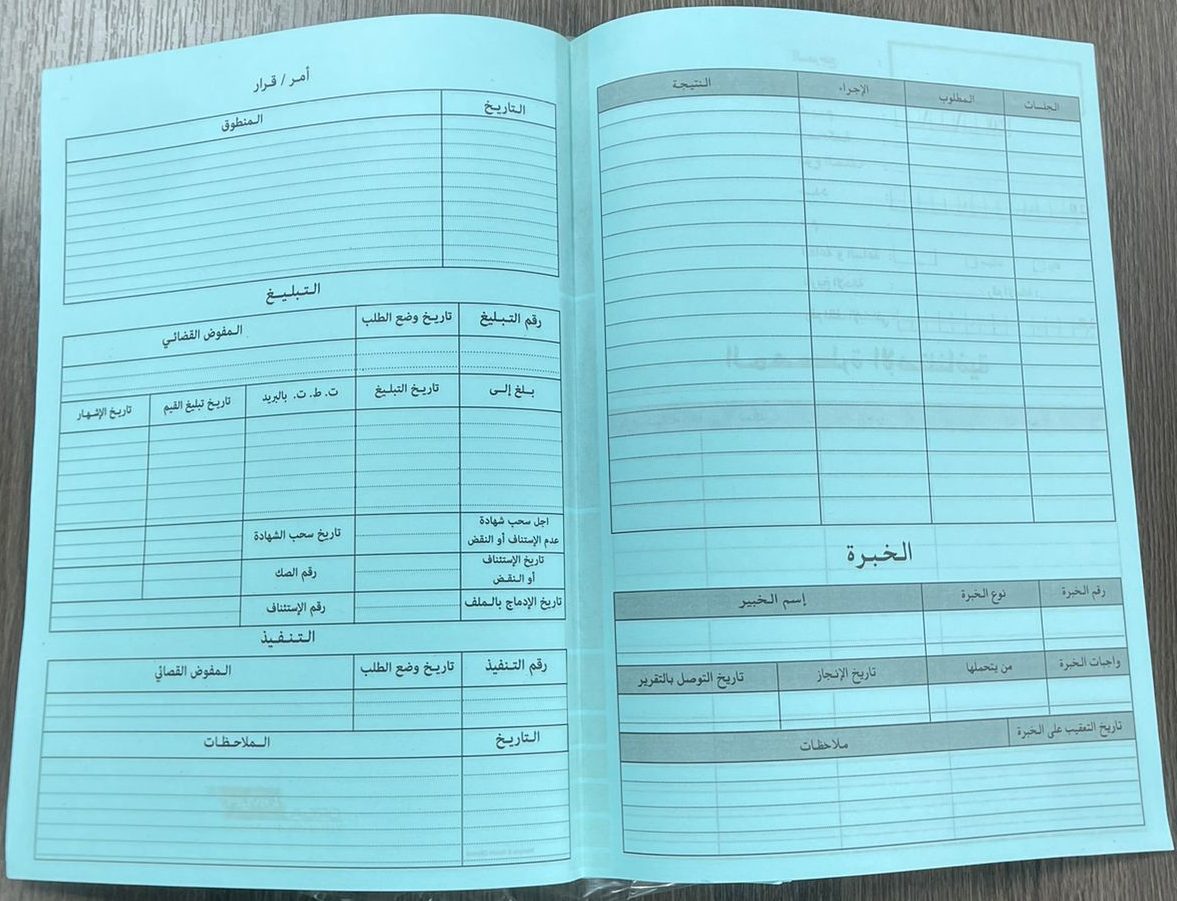 الجلسات المطلوب الإجراء النتيجة
الخبرة
رقم الخبرة نوع الخبرة إسم الخبير
واجبات الخبرة من يتحملها تاريخ الإنجاز تاريخ التوصل بالتقرير
تاريخ التعقيب على الخبرة ملاحظات
أمر / قرار
التاريخ المنطوق
التبليغ
رقم التبليغ تاريخ وضع الطلب المفوض القضائي
بلغ إلى تاريخ التبليغ ت. ط. ت. بالبريد تاريخ تبليغ القيم تاريخ الإشهار
اجل سحب شهادة
عدم الإستناف أو النقض
تاريخ سحب الشهادة
تاريخ الإستئناف
أو النقض
رقم الصك
تاريخ الإدماج بالملف رقم الإستئناف
التنفيذ
رقم التنفيذ تاريخ وضع الطلب المفوض القصائي
التاريخ الملاحظات